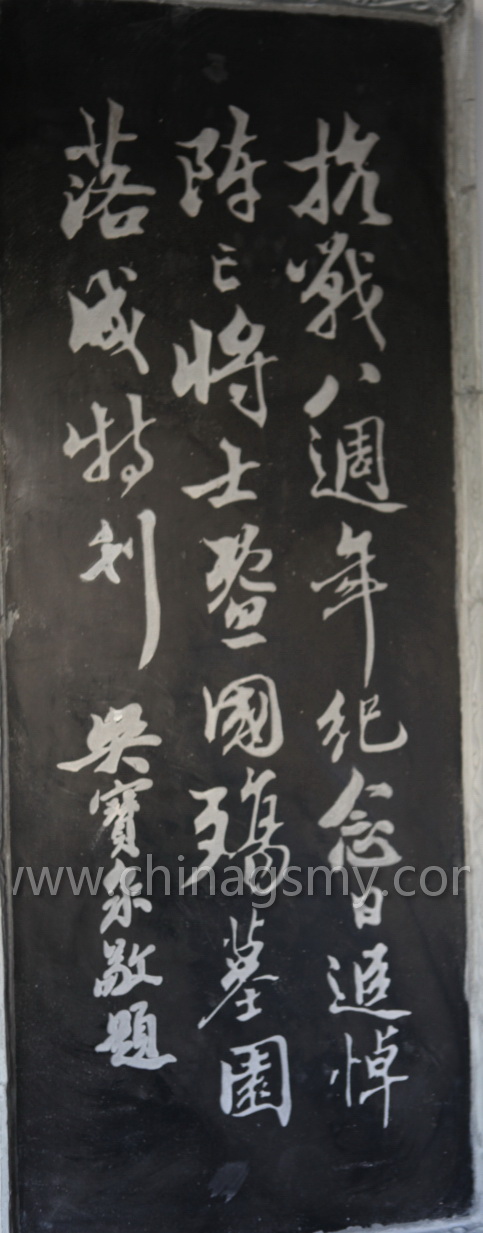 抗戰八週年紀念日追悼
陣亡將士暨國殤墓園
落成特刊
吳寶敬題
www.chinagsmy.cor